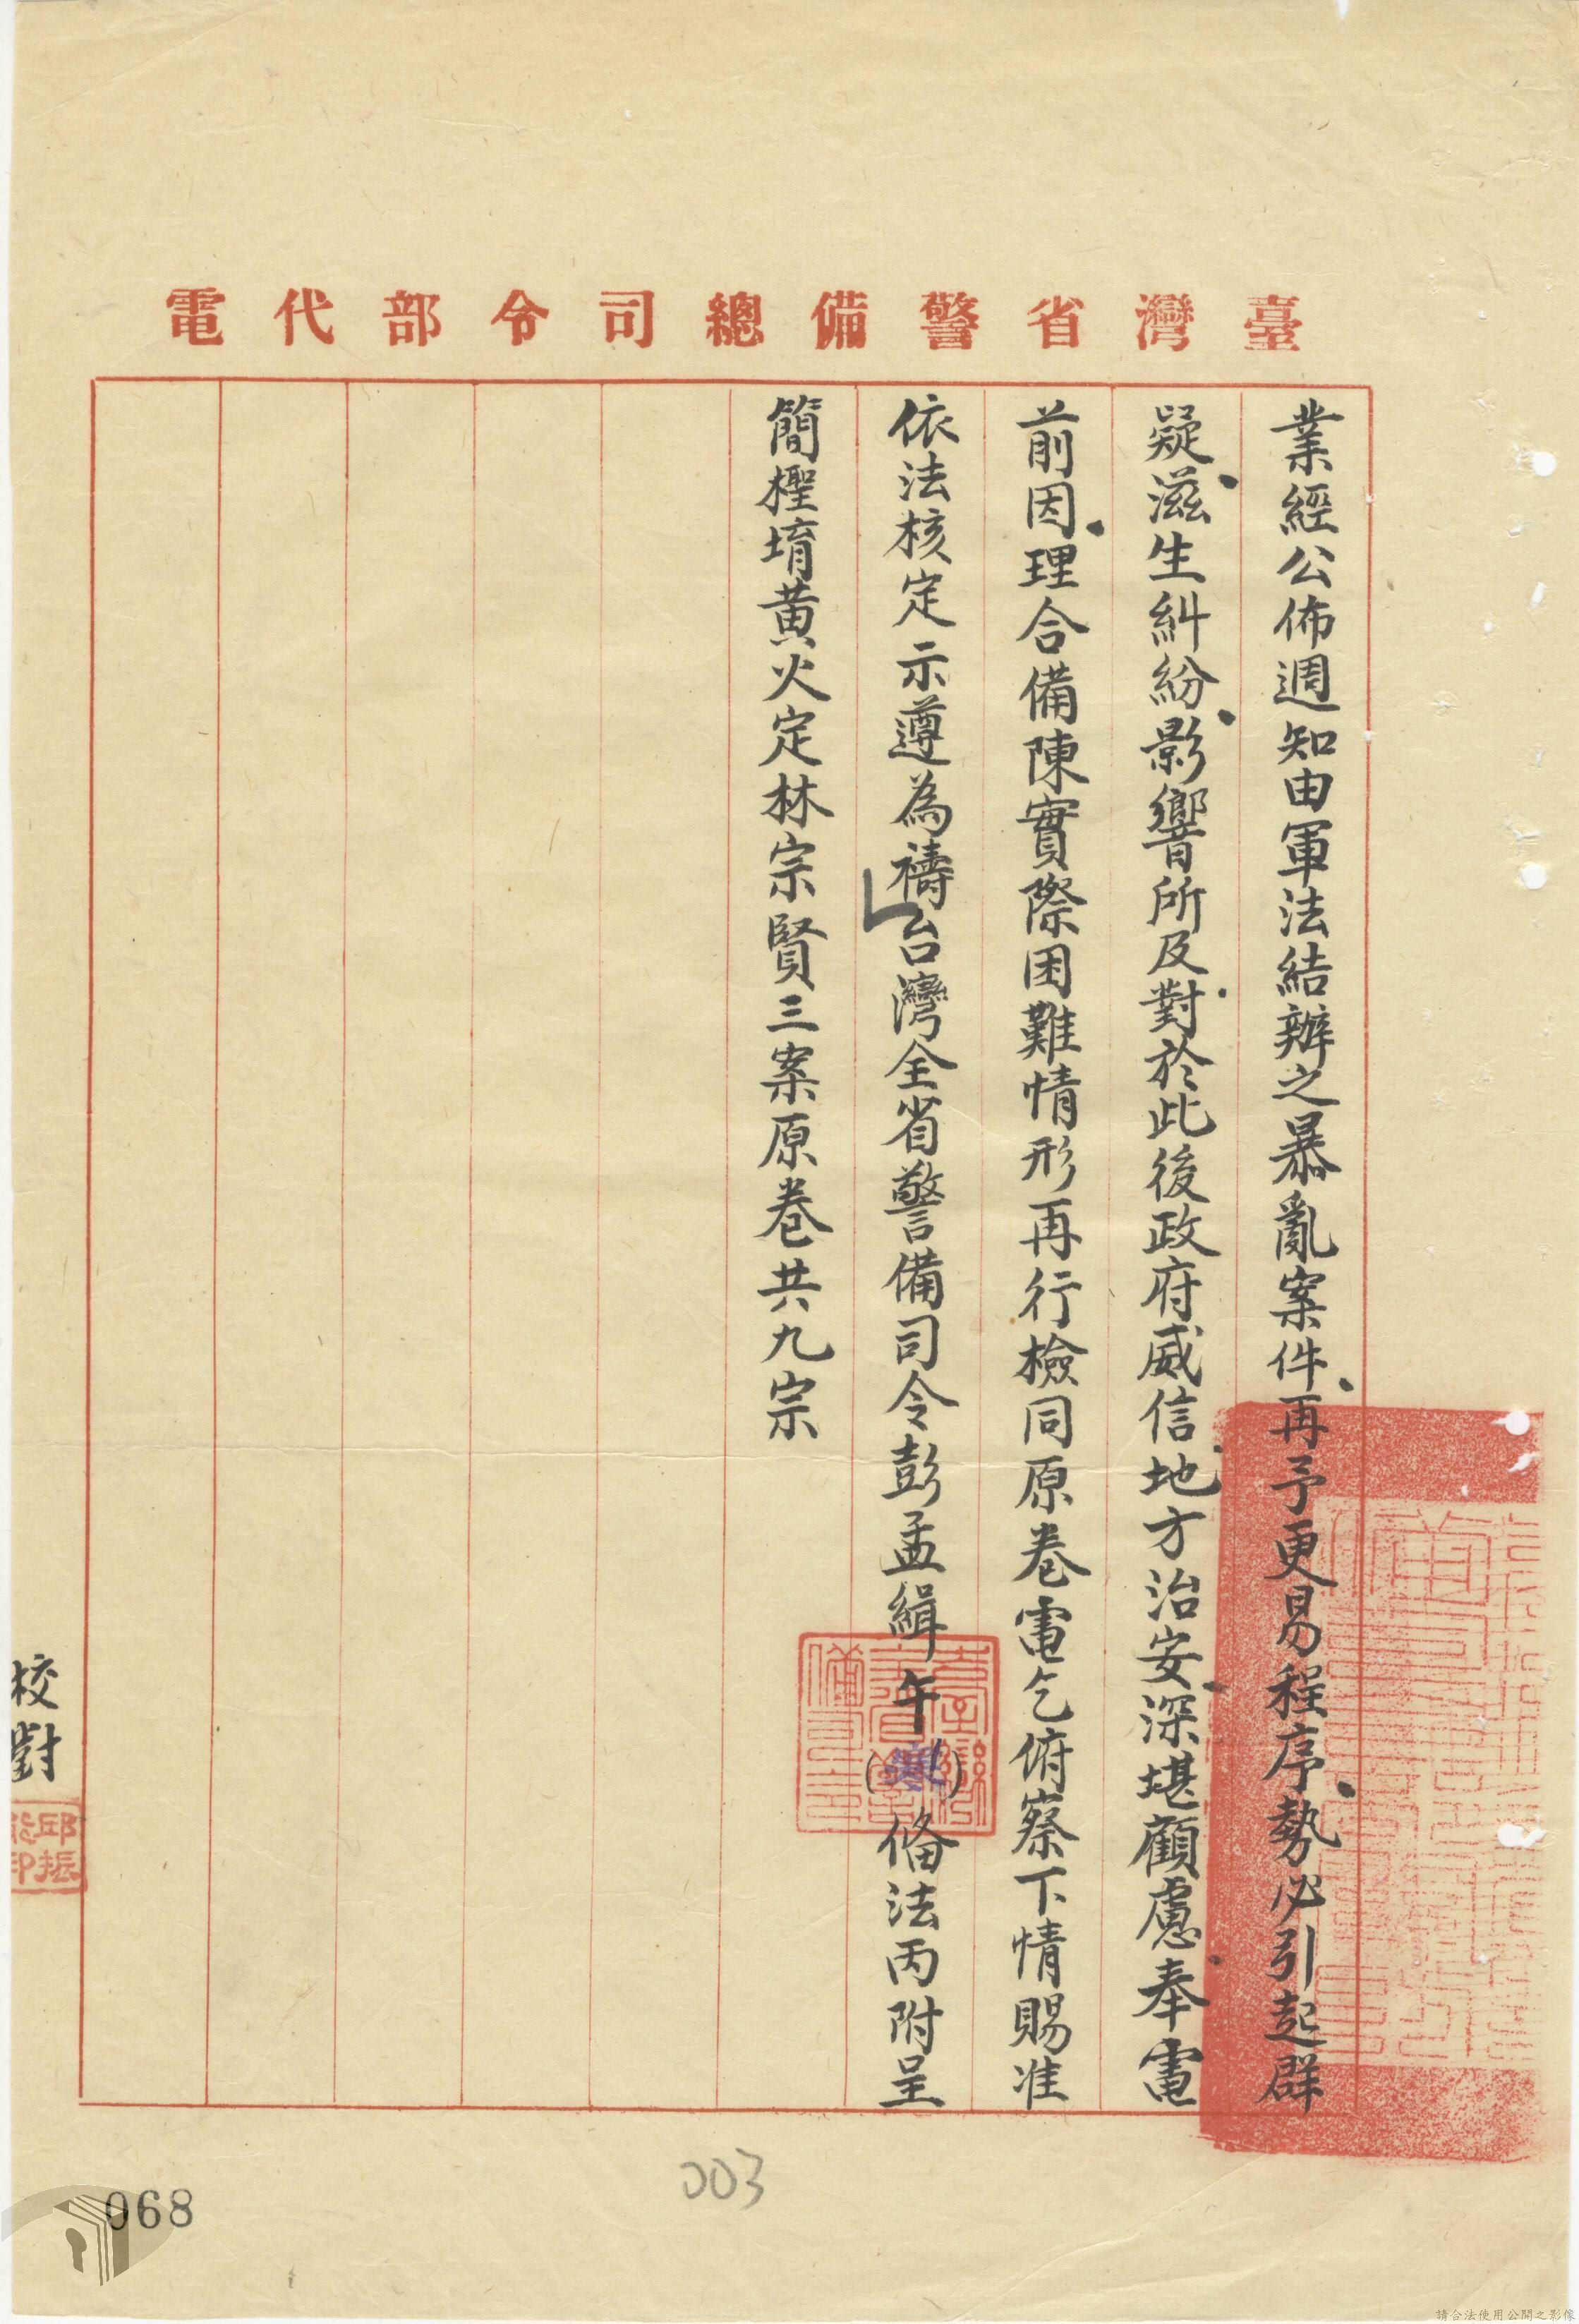 臺灣省警備總司令部代電
業經公佈週知由軍法結辦之暴亂案件再予更易程序勢必引起群
疑滋生糾紛影響所及對於此後政府威信地方治安深堪顧慮奉電
前因理合備陳實際困難情形再行檢同原卷電乞俯察下情賜准
依法核定示遵為禱台灣全省警備司令彭孟緝午（寒）俻法丙附呈
簡檉堉黃火定林宗賢三案原卷共九宗
校對
邱振
印
003
068
請合法使用公開之影像